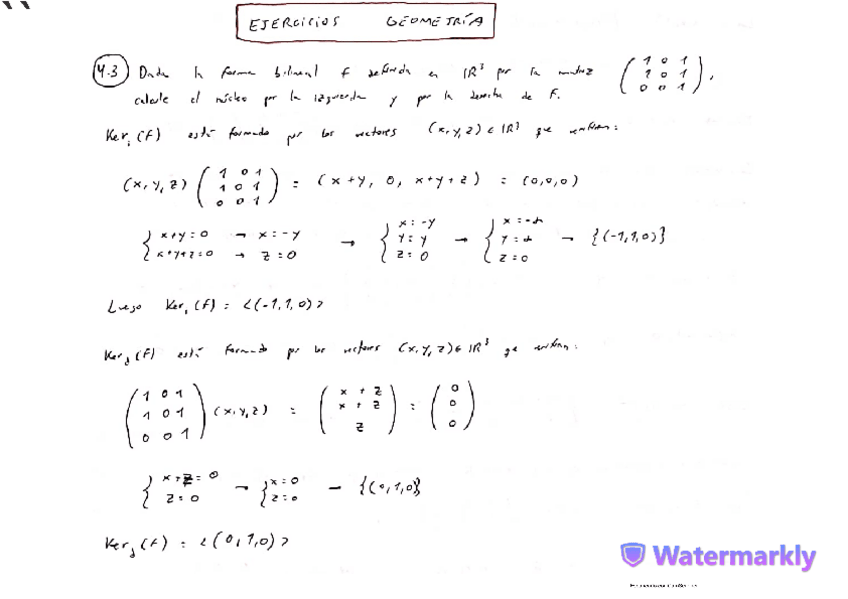 EJERCICIOS GEOMETRÍA
4.3 Dada la forma bilineal f definida en IR³ por la matriz ( 1 0 1 ; 1 0 1 ; 0 0 1 ),
calcule el núcleo por la izquierda y por la derecha de F.
Ker_i (F) está formado por los vectores (x,y,z) ∈ IR³ que verifican:
(x,y,z) ( 1 0 1 ; 1 0 1 ; 0 0 1 ) = (x+y, 0, x+y+z) = (0,0,0)
{ x+y=0 → x=-y ; x+y+z=0 → z=0 → { x=-y ; y=y ; z=0 → { x=-α ; y=α ; z=0 → {(-1,1,0)}
Luego Ker_i (F) = <(-1,1,0)>
Ker_d (F) está formado por los vectores (x,y,z) ∈ IR³ que verifican:
( 1 0 1 ; 1 0 1 ; 0 0 1 ) (x,y,z) = ( x+z ; x+z ; z ) = ( 0 ; 0 ; 0 )
{ x+z=0 ; z=0 → { x=0 ; z=0 → {(0,1,0)}
Ker_d (F) = <(0,1,0)>
Watermarkly